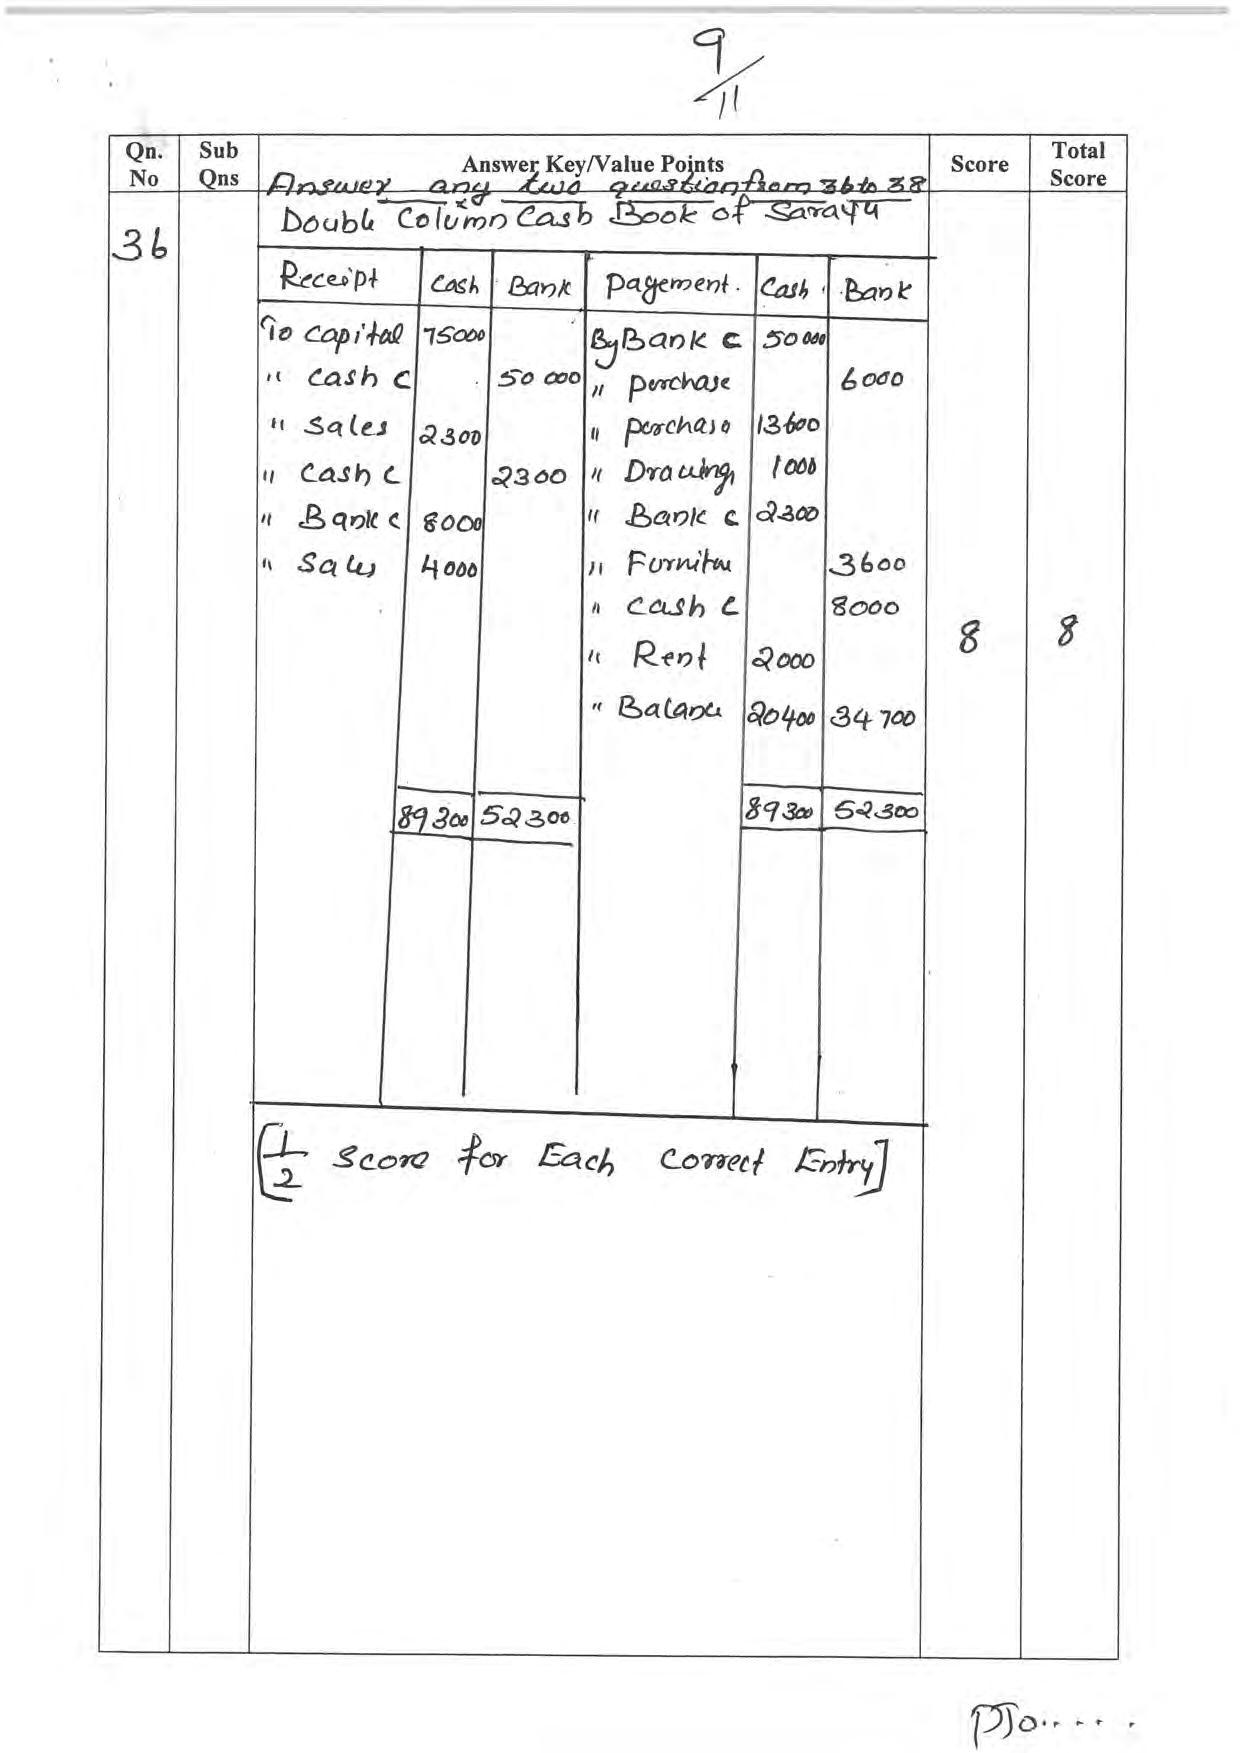 9/11
Qn. No Sub Qns Answer Key/Value Points Score Total Score
Answer any two question from 36 to 38
Double Column Cash Book of Sarayu
36
Receipt Cash Bank Pagement. Cash Bank
To capital 75000 By Bank c 50000
" cash c 50000 " purchase 6000
" Sales 2300 " purchase 13600
" Cash c 2300 " Drawing 1000
" Bank c 8000 " Bank c 2300
" Sales 4000 " Furnitur 3600
" cash c 8000
" Rent 2000
8 8
" Balance 20400 34700
89300 52300 89300 52300
[1/2 Score for Each correct Entry]
PTO.....